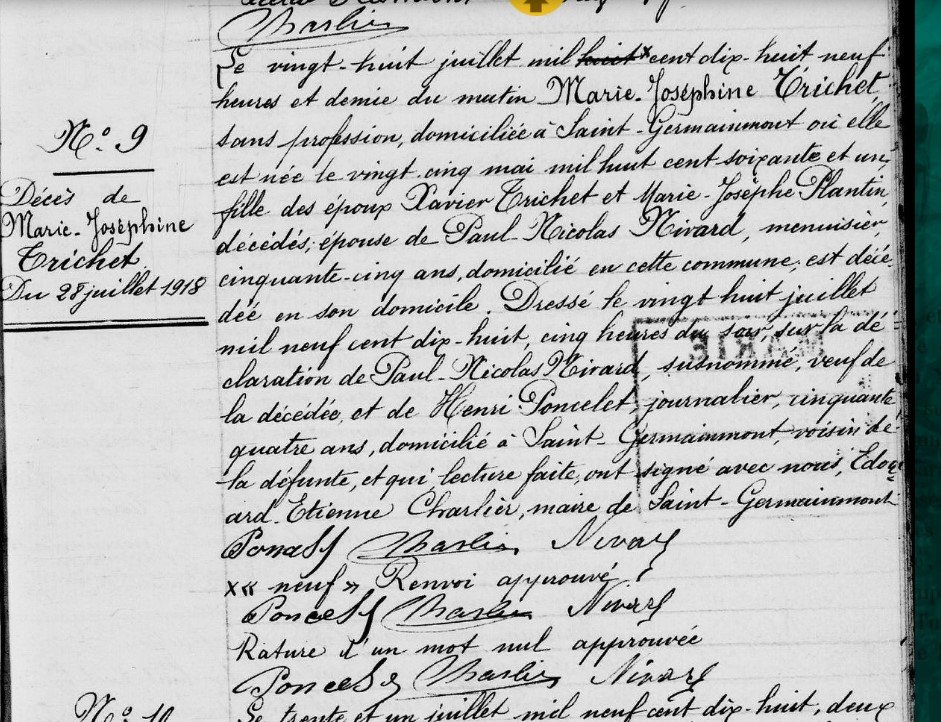 Charlier
Le vingt-huit juillet mil huit x cent dix-huit neuf
heures et demie du matin Marie-Joséphine Trichet,
sans profession, domiciliée à Saint-Germainmont où elle
est née le vingt cinq mai mil huit cent soixante et un,
fille des époux Xavier Trichet et Marie-Josèphe Plantin,
décédés; épouse de Paul-Nicolas Nivard, menuisier
cinquante-cinq ans, domicilié en cette commune, est décé-
dée en son domicile. Dressé le vingt huit juillet
mil neuf cent dix-huit, cinq heures du soir, sur la dé
claration de Paul-Nicolas Nivard, susnommé, veuf de
la décédée, et de Henri Poncelet, journalier, cinquante
quatre ans, domicilié à Saint-Germainmont, voisin de
la défunte, et qui lecture faite, ont signé avec nous, Edou
ard-Etienne Charlier, maire de Saint-Germainmont
Charlier Nivard
x « neuf » Renvoi approuvé
Poncelet Charlier Nivard
Rature d'un mot nul approuvée
Poncelet Charlier Nivard
N° 9
Décès de
Marie-Joséphine
Trichet
Du 28 juillet 1918
MAIRIE
N° 10
Le trente et un juillet mil neuf cent dix-huit, deux